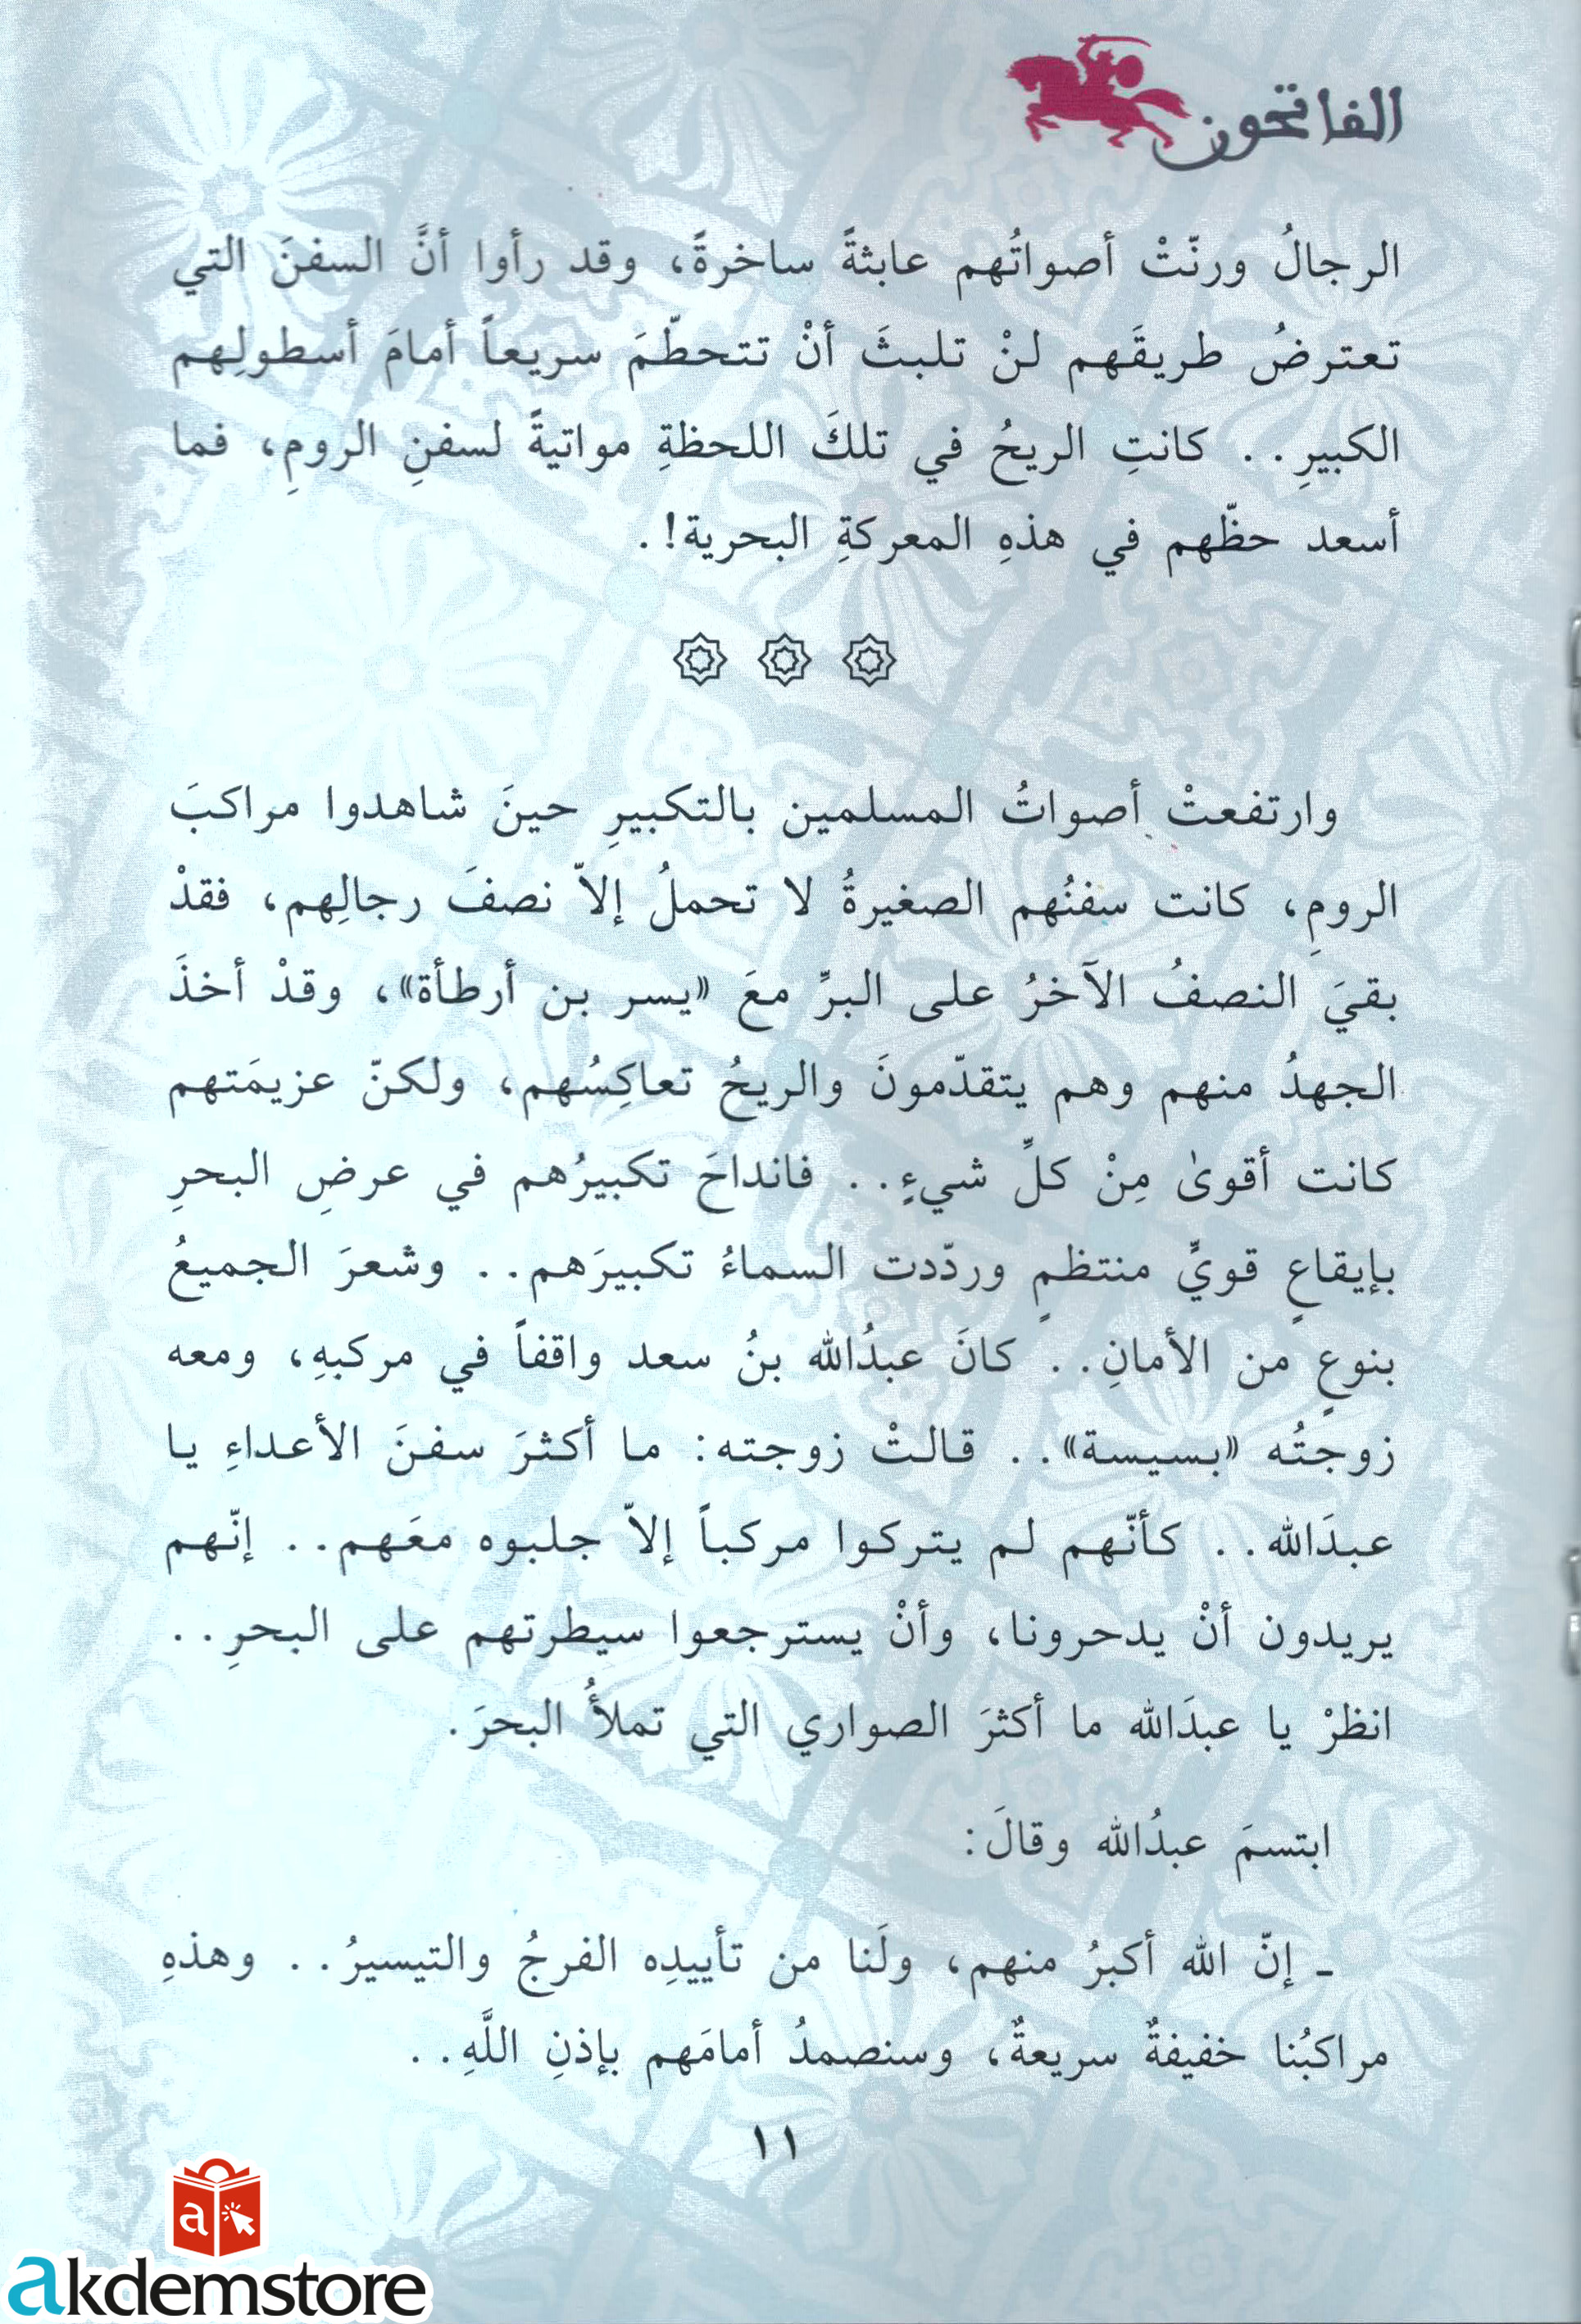 الفاتحون
الرجالُ ورنّتْ أصواتُهم عابثةً ساخرةً، وقد رأوا أنَّ السفنَ التي
تعترضُ طريقَهم لنْ تلبثَ أنْ تتحطّمَ سريعاً أمامَ أسطولِهم
الكبيرِ.. كانتِ الريحُ في تلكَ اللحظةِ مواتيةً لسفنِ الرومِ، فما
أسعد حظّهم في هذهِ المعركةِ البحرية!.
وارتفعتْ أصواتُ المسلمين بالتكبيرِ حينَ شاهدوا مراكبَ
الرومِ، كانت سفنُهم الصغيرةُ لا تحملُ إلاّ نصفَ رجالِهم، فقدْ
بقيَ النصفُ الآخرُ على البرِّ معَ «يسر بن أرطأة»، وقدْ أخذَ
الجهدُ منهم وهم يتقدّمونَ والريحُ تعاكِسُهم، ولكنّ عزيمَتهم
كانت أقوىٰ مِنْ كلِّ شيءٍ.. فانداحَ تكبيرُهم في عرضِ البحرِ
بإيقاعٍ قويٍّ منتظمٍ وردّدت السماءُ تكبيرَهم.. وشعرَ الجميعُ
بنوعٍ من الأمانِ.. كانَ عبدُالله بنُ سعد واقفاً في مركبهِ، ومعه
زوجتُه «بسيسة».. قالتْ زوجته: ما أكثرَ سفنَ الأعداءِ يا
عبدَالله.. كأنّهم لم يتركوا مركباً إلاّ جلبوه معَهم.. إنّهم
يريدون أنْ يدحرونا، وأنْ يسترجعوا سيطرتهم على البحرِ..
انظرْ يا عبدَالله ما أكثرَ الصواري التي تملأُ البحرَ.
ابتسمَ عبدُالله وقالَ:
ـ إنّ الله أكبرُ منهم، ولَنا من تأييدِه الفرجُ والتيسيرُ.. وهذهِ
مراكبُنا خفيفةٌ سريعةٌ، وسنصمدُ أمامَهم بإذنِ اللَّهِ..
١١
a
akdemstore